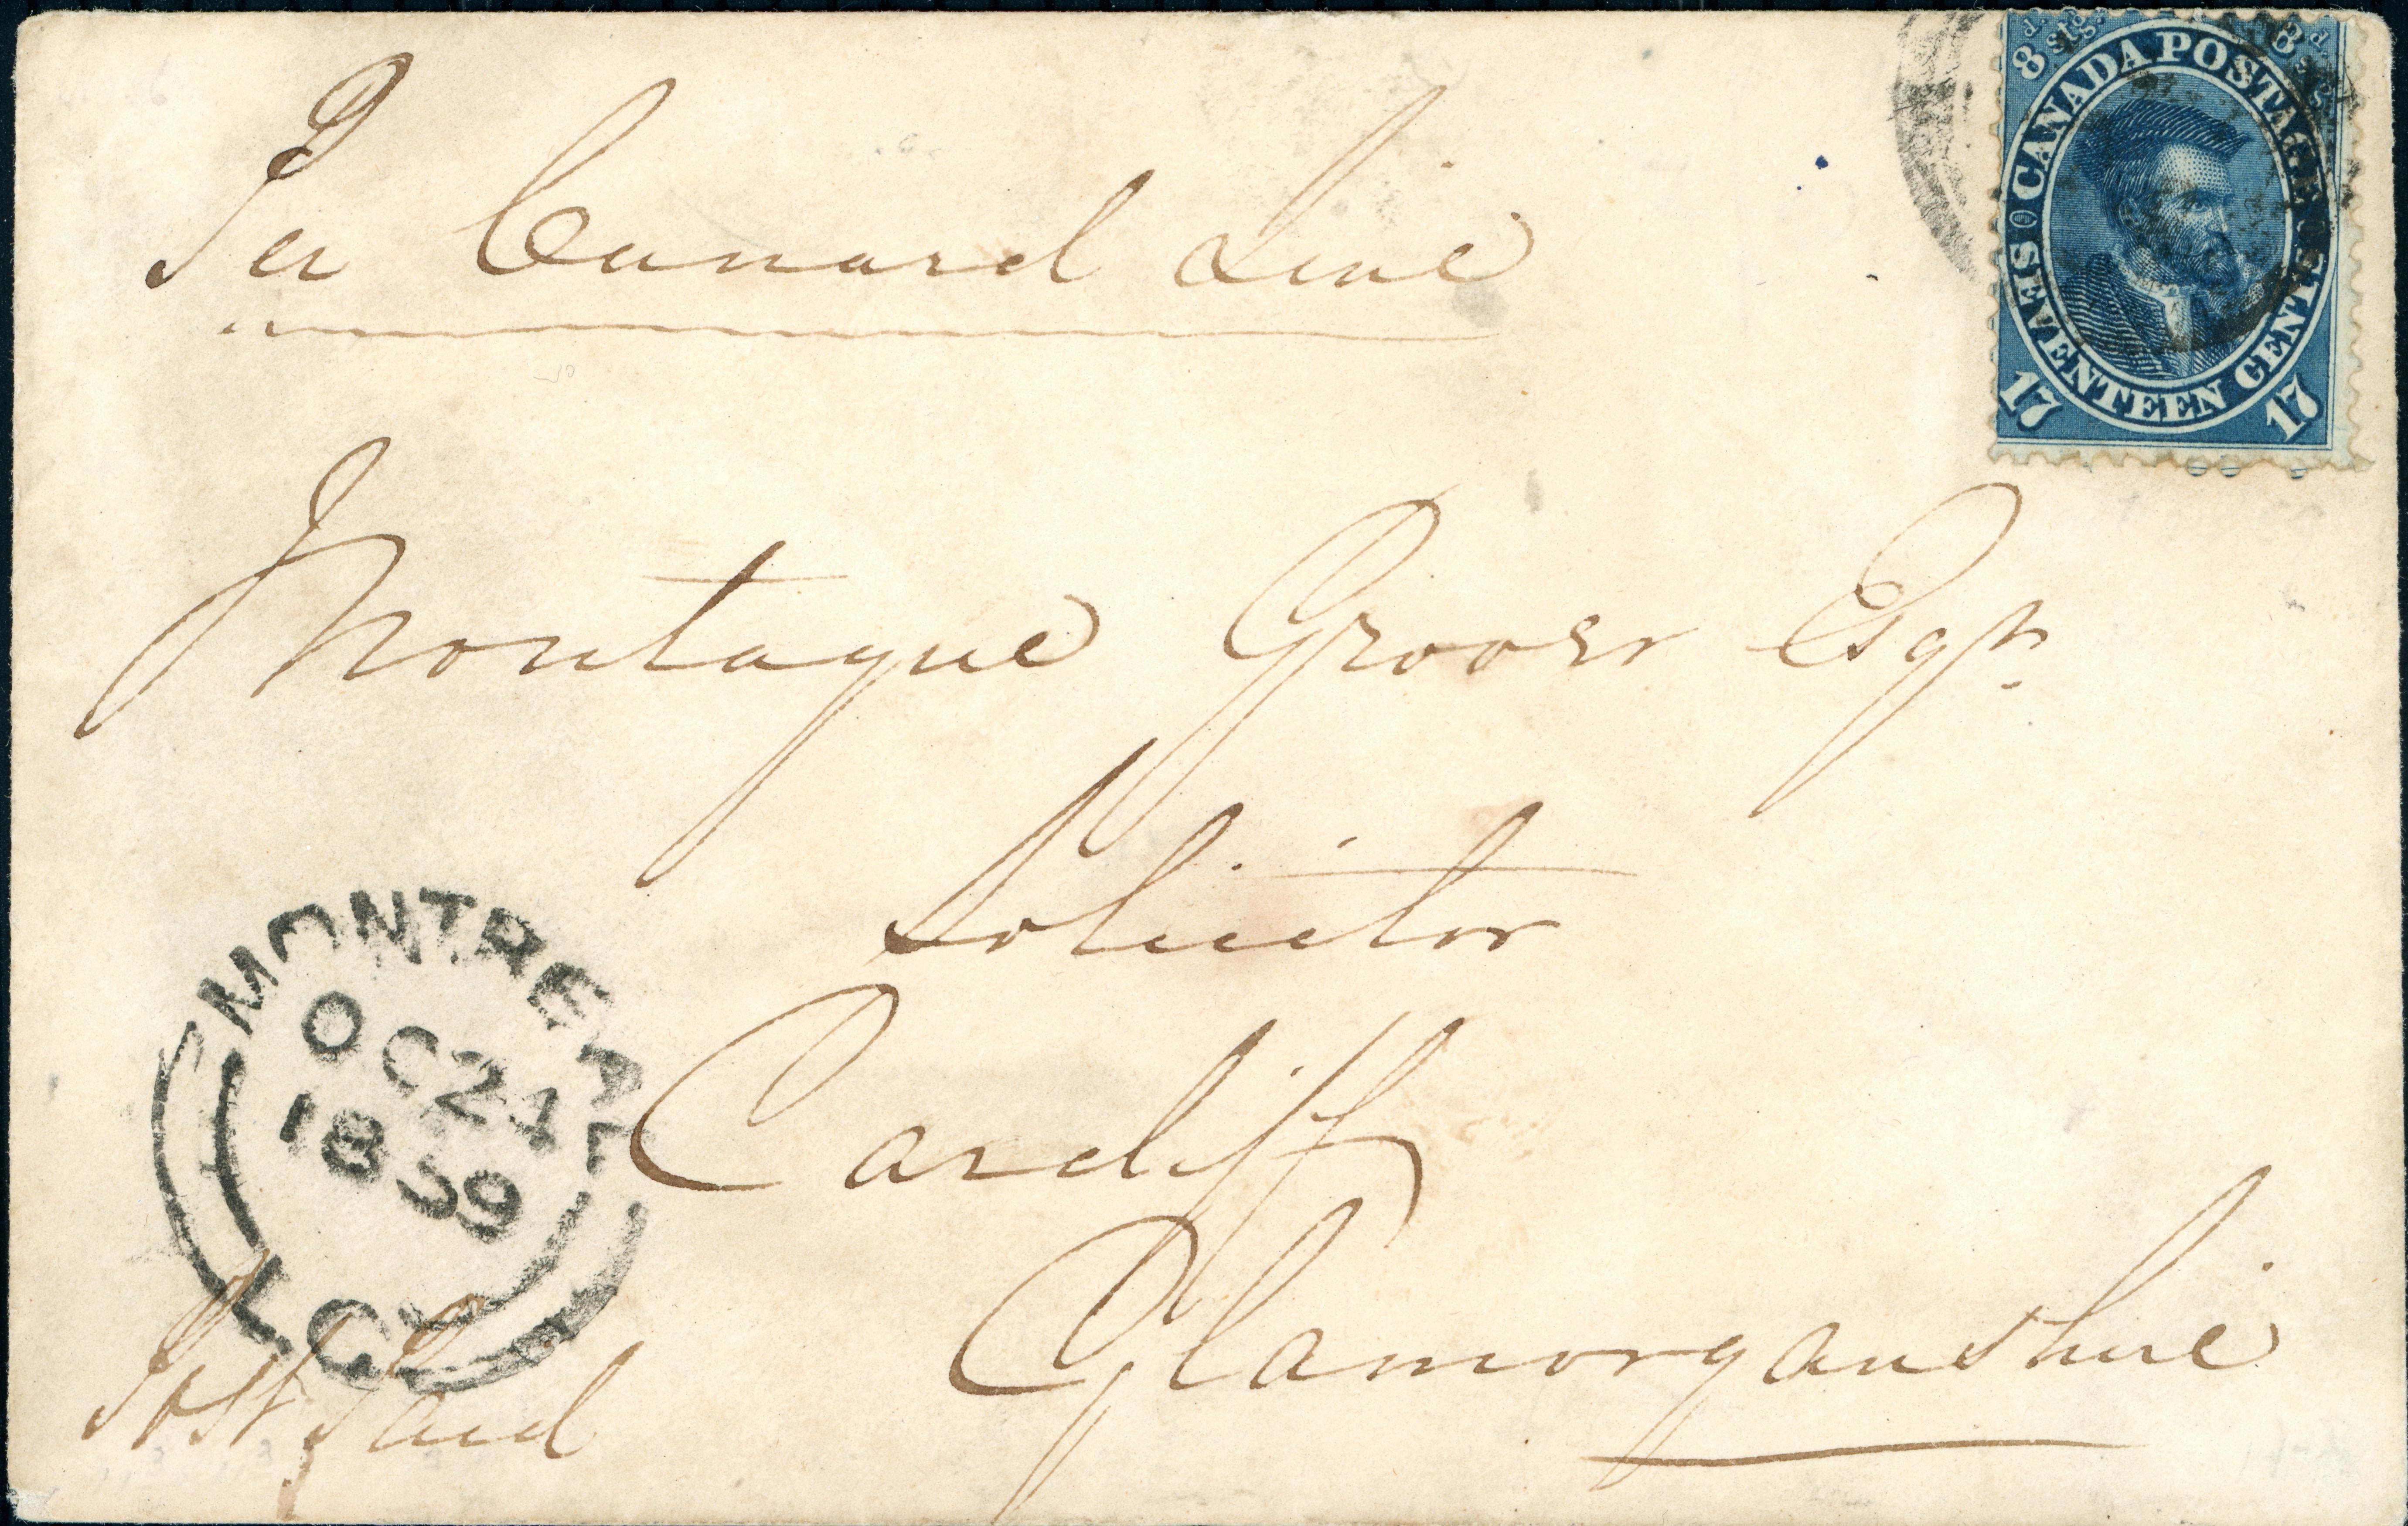 Per Cunard Line
8d stg. 8d
CANADA POSTAGE
SEVENTEEN CENTS
17 17
Montague Grover Esqr.
Solicitor
Cardiff
Glamorganshire
MONTREAL
OC 21
1859
L.C.
Post Paid